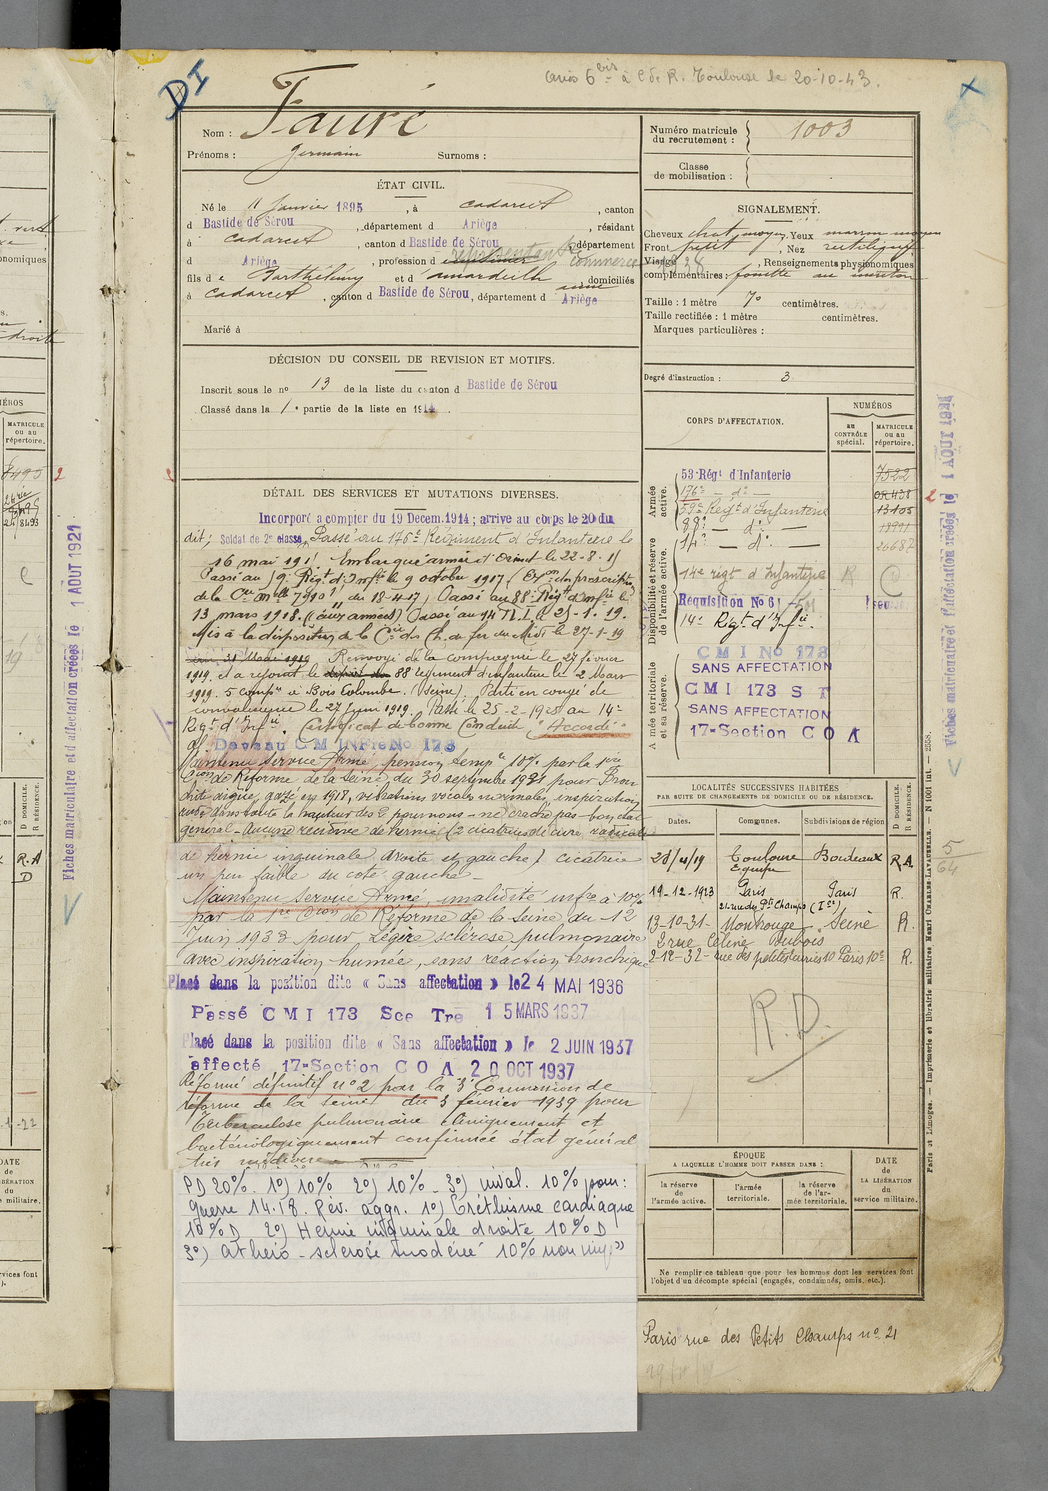 DI
6 bis à C de R. Toulouse le 20-10-43.
Nom : Fauré
Prénoms : Germain Surnoms :
Numéro matricule du recrutement : 1003
Classe de mobilisation :
ÉTAT CIVIL.
Né le 11 Janvier 1895, à Cadarcet, canton
d Bastide de Sérou, département d Ariège, résidant
à Cadarcet, canton d Bastide de Sérou, département
d Ariège, profession d représentant commerce
fils de Barthélemy et d domiciliés
à Cadarcet, canton d Bastide de Sérou, département d Ariège
Marié à
SIGNALEMENT.
Cheveux chat. moyen, Yeux marron moyen
Front petit, Nez rectiligne
Visage, Renseignements physionomiques
complémentaires : fossette au menton
Taille : 1 mètre 70 centimètres.
Taille rectifiée : 1 mètre centimètres.
Marques particulières :
Degré d'instruction : 3
DÉCISION DU CONSEIL DE REVISION ET MOTIFS.
Inscrit sous le n° 13 de la liste du canton d Bastide de Sérou
Classé dans la 1e partie de la liste en 1914.
CORPS D'AFFECTATION.
NUMÉROS
au CONTRÔLE spécial.
MATRICULE ou au répertoire.
Armée active.
53e Régt d'Infanterie 7522
176e - do -
59e Régt d'Infanterie 13105
88e - do -
14e - do - 20687
Disponibilité et réserve de l'armée active.
14e régt d'Infanterie R
Requisition No 6
14e Régt d'Infie.
Armée territoriale et sa réserve.
CMI No 173
SANS AFFECTATION
CMI 173 S T
SANS AFFECTATION
17e Section COA
DÉTAIL DES SERVICES ET MUTATIONS DIVERSES.
Incorporé à compter du 19 Decem. 1914 ; arrivé au corps le 20 du
dit ; Soldat de 2e classe, Passé au 176e Régiment d'Infanterie le
16 mai 191 Embarqué armée d'Orient le 22-8-15
Passé au 9e Régt d'Infie le 9 octobre 1917
de la du 18-4-17, Passé au 88e Régt d'Infie le
13 mars 1918. (aux armées) Passé au 14 R.I. le 25-1-19.
Mis à la disposition de la Cie des Ch. de fer du Midi le 27-1-19
Renvoyé de la compagnie le 27 février
1919 et a rejoint le 88 régiment d'infanterie le 2 Mars
1919. 5 compie à Bois Colombe. (Seine). Parti en congé de
convalescence le 27 Juin 1919. Passé le 25-2-1925 au 14e
Régt d'Infie. Certificat de bonne Conduite "Accordé"
CMI No 173
Maintenu Service Armé, pension tempre 10% par la 1ère
Cion de Réforme de la Seine, du 30 septembre 1931 pour Bron
chite aigue, gazé en 1918, vibrations vocales normales, inspiration
rude dans toute la hauteur des 2 poumons - ne crache pas - bon état
général - Aucune récidive de hernie (2 cicatrices de cure radicale
de hernie inguinale droite et gauche) cicatrice
un peu faible du coté gauche -
Maintenu Service Armé, invalidité infre à 10%
par la 1re Cion de Réforme de la Seine du 12
Juin 1933 pour Légère sclérose pulmonaire
avec inspiration humée, sans réaction bronchique
Placé dans la position dite « Sans affectation » le 24 MAI 1936
Passé CMI 173 Sce Tre 15 MARS 1937
Placé dans la position dite « Sans affectation » le 2 JUIN 1937
affecté 17e Section COA 20 OCT 1937
Réformé définitif n°2 par la 3e Commission de
réforme de la Seine du 3 février 1939 pour
Tuberculose pulmonaire cliniquement et
bactériologiquement confirmée état général
très médiocre
PD 20%. 1°) 10% 2°) 10% - 3°) inval. 10% pour :
guerre 14.18. Rév. aggr. 1°) Eréthisme cardiaque
10% D 2°) Hernie inguinale droite 10% D
3°) athéro-sclérose modérée 10% non imp.
LOCALITÉS SUCCESSIVES HABITÉES
PAR SUITE DE CHANGEMENTS DE DOMICILE OU DE RÉSIDENCE.
Dates. Communes. Subdivisions de région D DOMICILE. R RÉSIDENCE.
28/4/19 Toulouse Bordeaux R.A
19-12-1923 Paris Paris R.
21 rue des Pts Champs (Ier)
13-10-31 Montrouge Seine R.
2 rue Céline Dubois
2-12-32 rue des petites écuries 10 Paris 10e R.
R.D.
ÉPOQUE
A LAQUELLE L'HOMME DOIT PASSER DANS :
la réserve de l'armée active.
l'armée territoriale.
la réserve de l'armée territoriale.
DATE de LA LIBÉRATION du service militaire.
Ne remplir ce tableau que pour les hommes dont les services font
l'objet d'un décompte spécial (engagés, condamnés, omis, etc.).
Paris rue des Petits Champs no 21
Fiches matriculaire et d'affectation créées le 1 AOUT 1921
Fiches matriculaire et d'affectation créées le 1 AOUT 1921
Paris et Limoges. — Imprimerie et librairie militaires Henri CHARLES-LAVAUZELLE. — N 1001 int. — 2558.
5
64